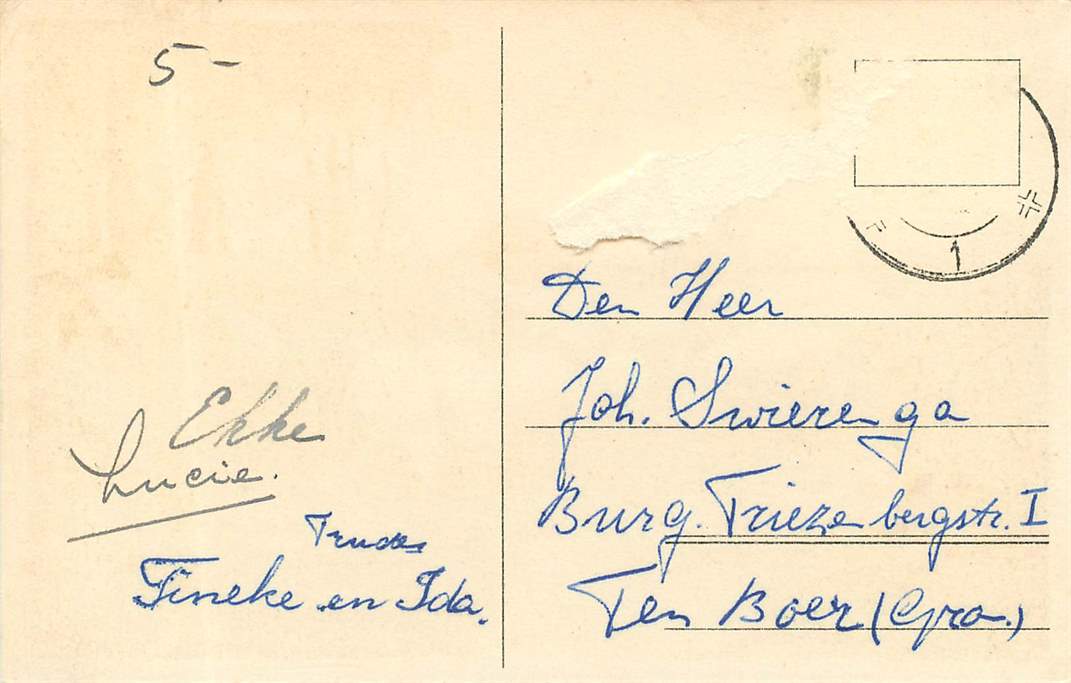 5 -
Ekke
Lucie.
Trudes
Fineke en Ida.
Den Heer
Joh. Swierenga
Burg. Triezenbergstr. I
Ten Boer (Gro.)
F
1